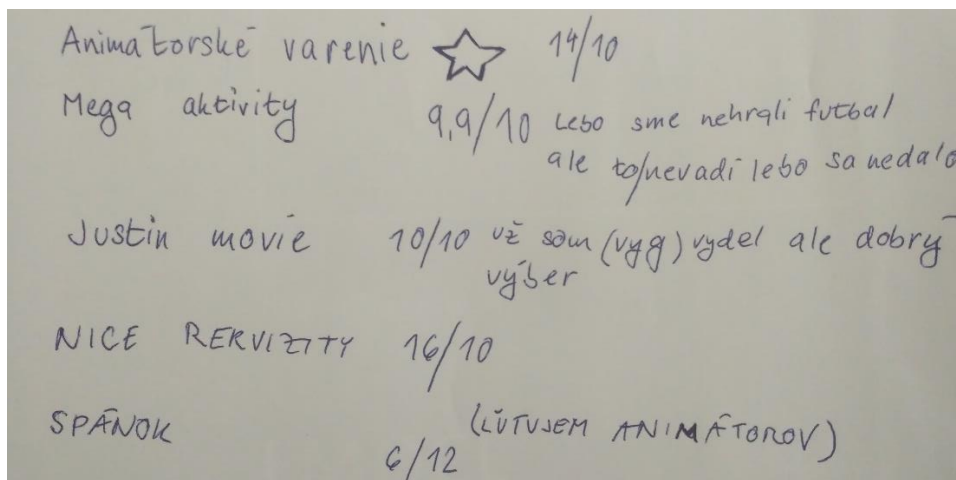 Animátorské varenie 14/10
Mega aktivity 9,9/10 Lebo sme nehrali futbal
ale to/nevadí lebo sa nedalo
Justin movie 10/10 už som (vyg) vydel ale dobrý
výber
NICE REKVIZITY 16/10
SPÁNOK (ĽUTUJEM ANIMÁTOROV)
6/12